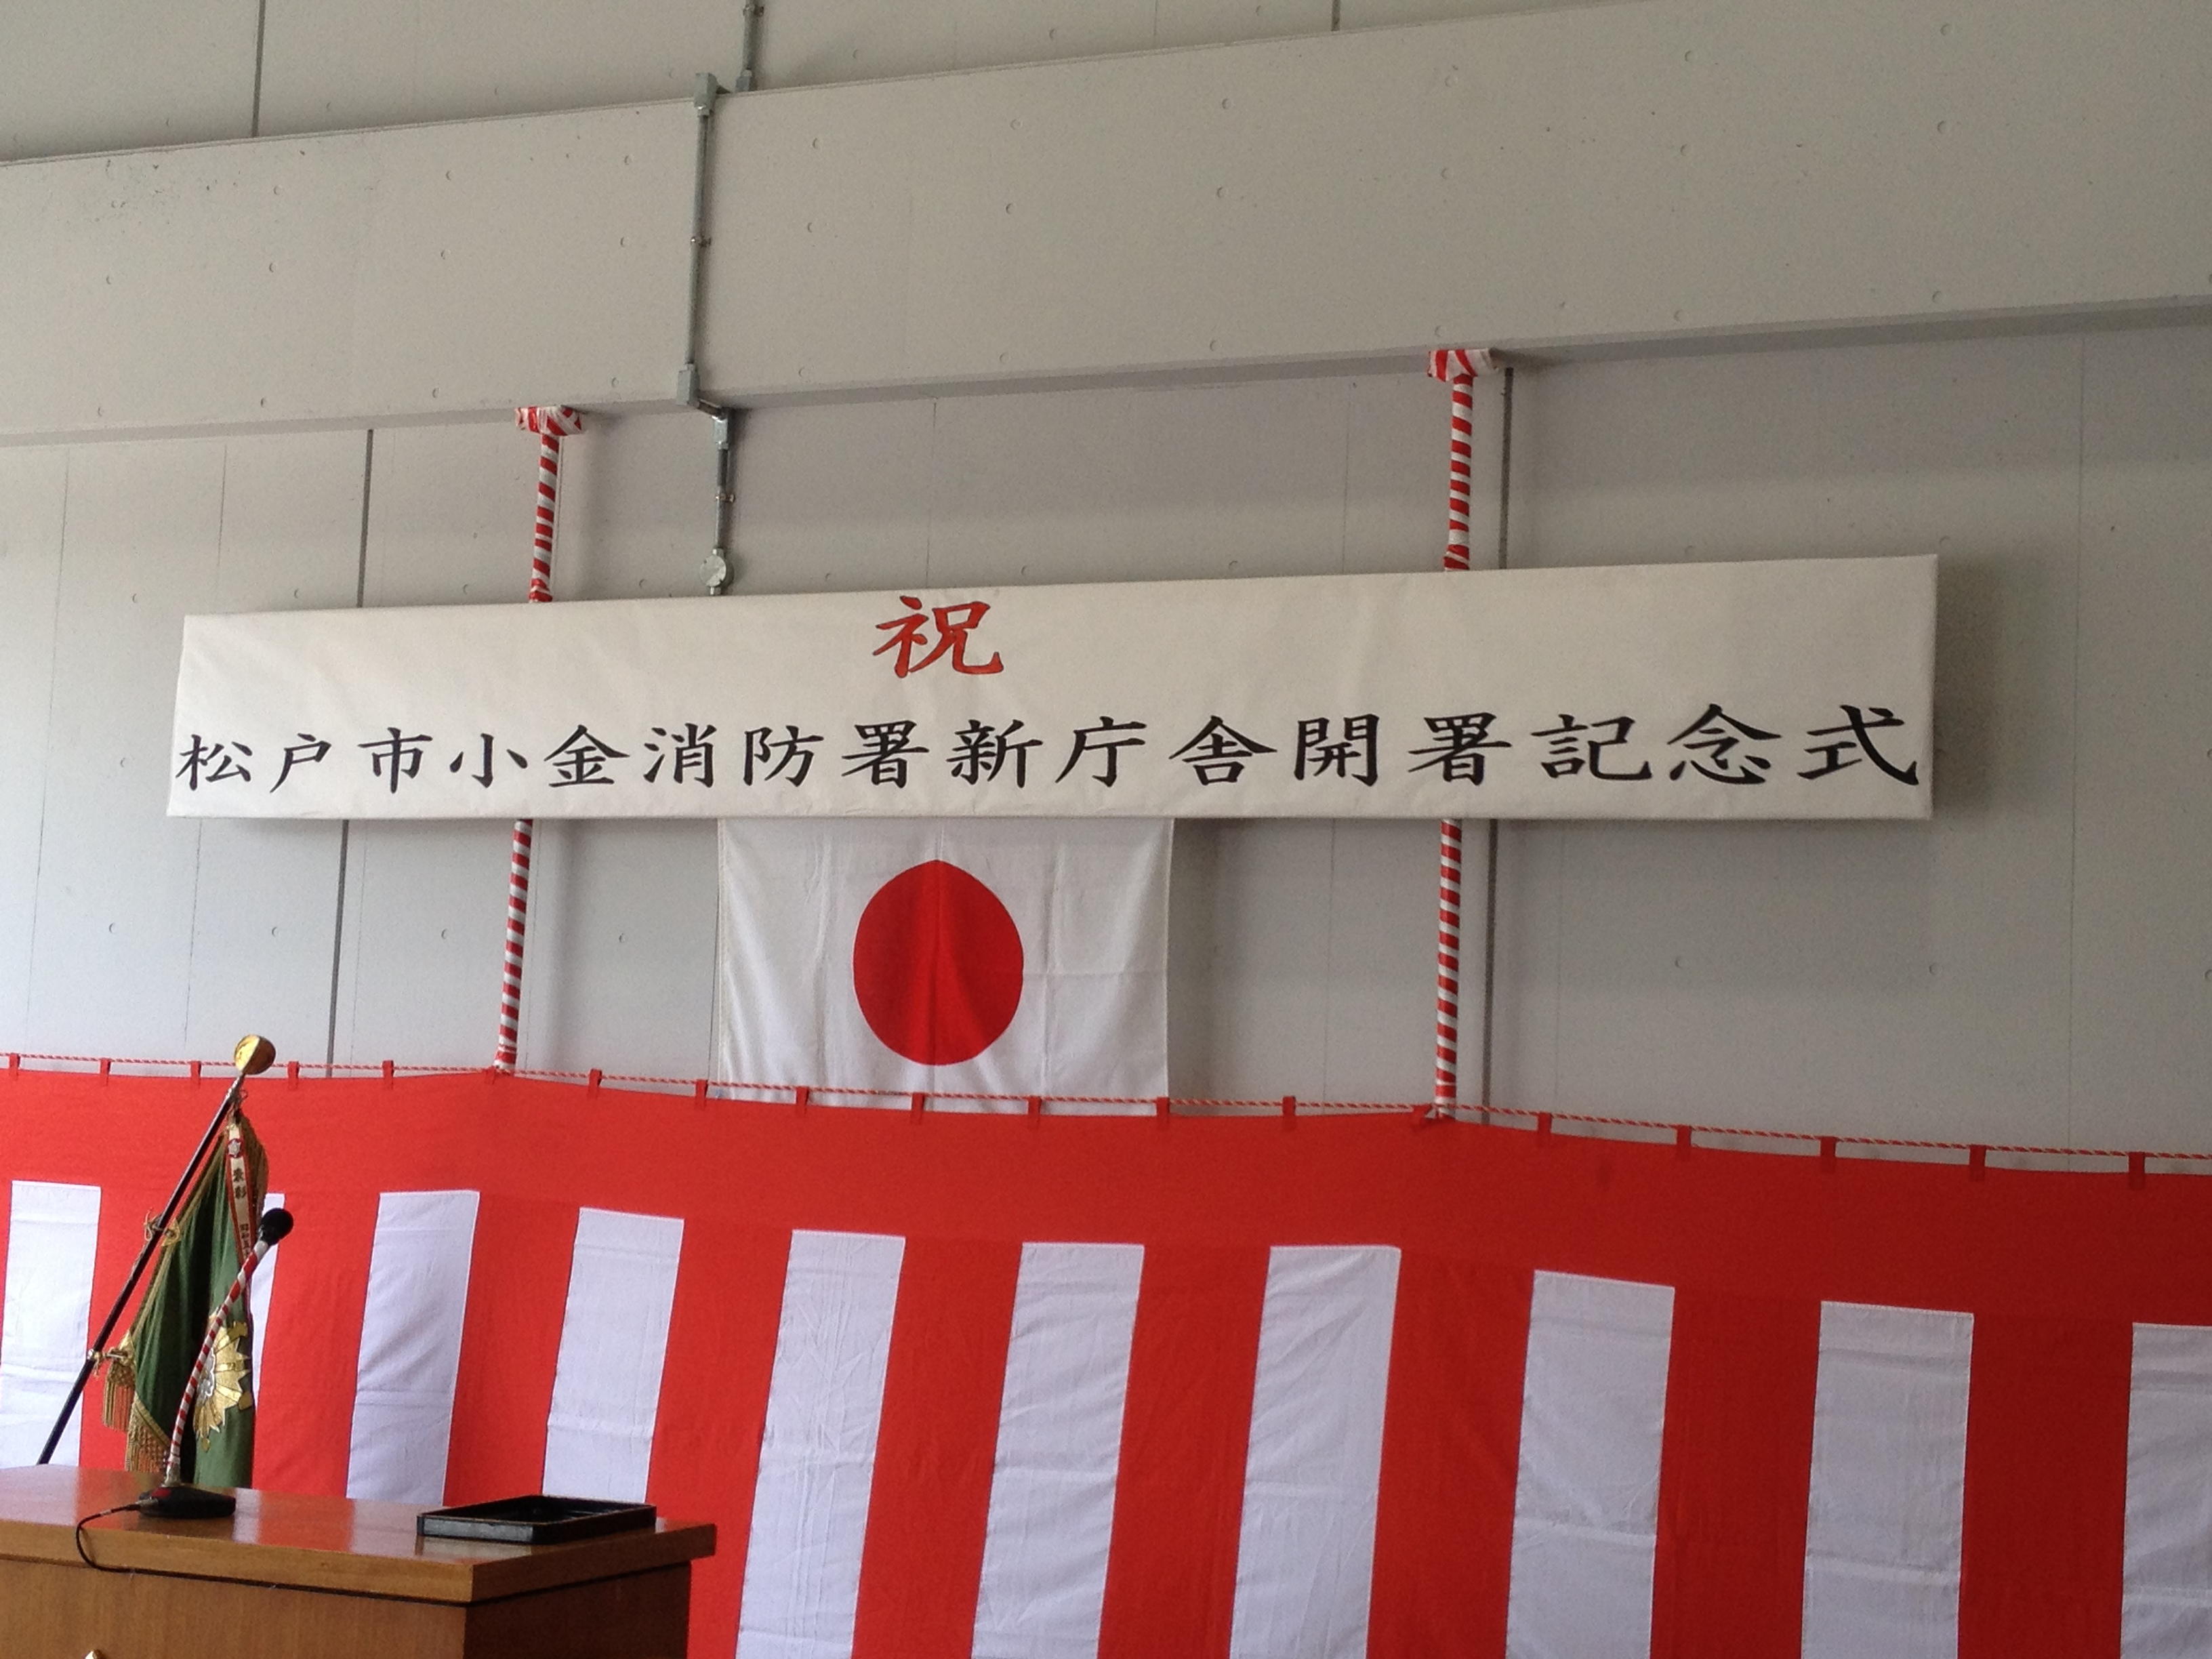 祝
松戸市小金消防署新庁舎開署記念式
表彰